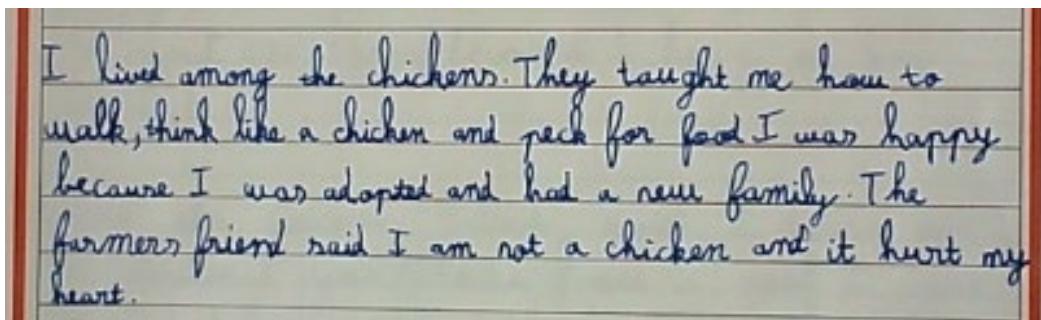 I lived among the chickens. They taught me how to
walk, think like a chicken and peck for food I was happy
because I was adopted and had a new family. The
farmers friend said I am not a chicken and it hurt my
heart.